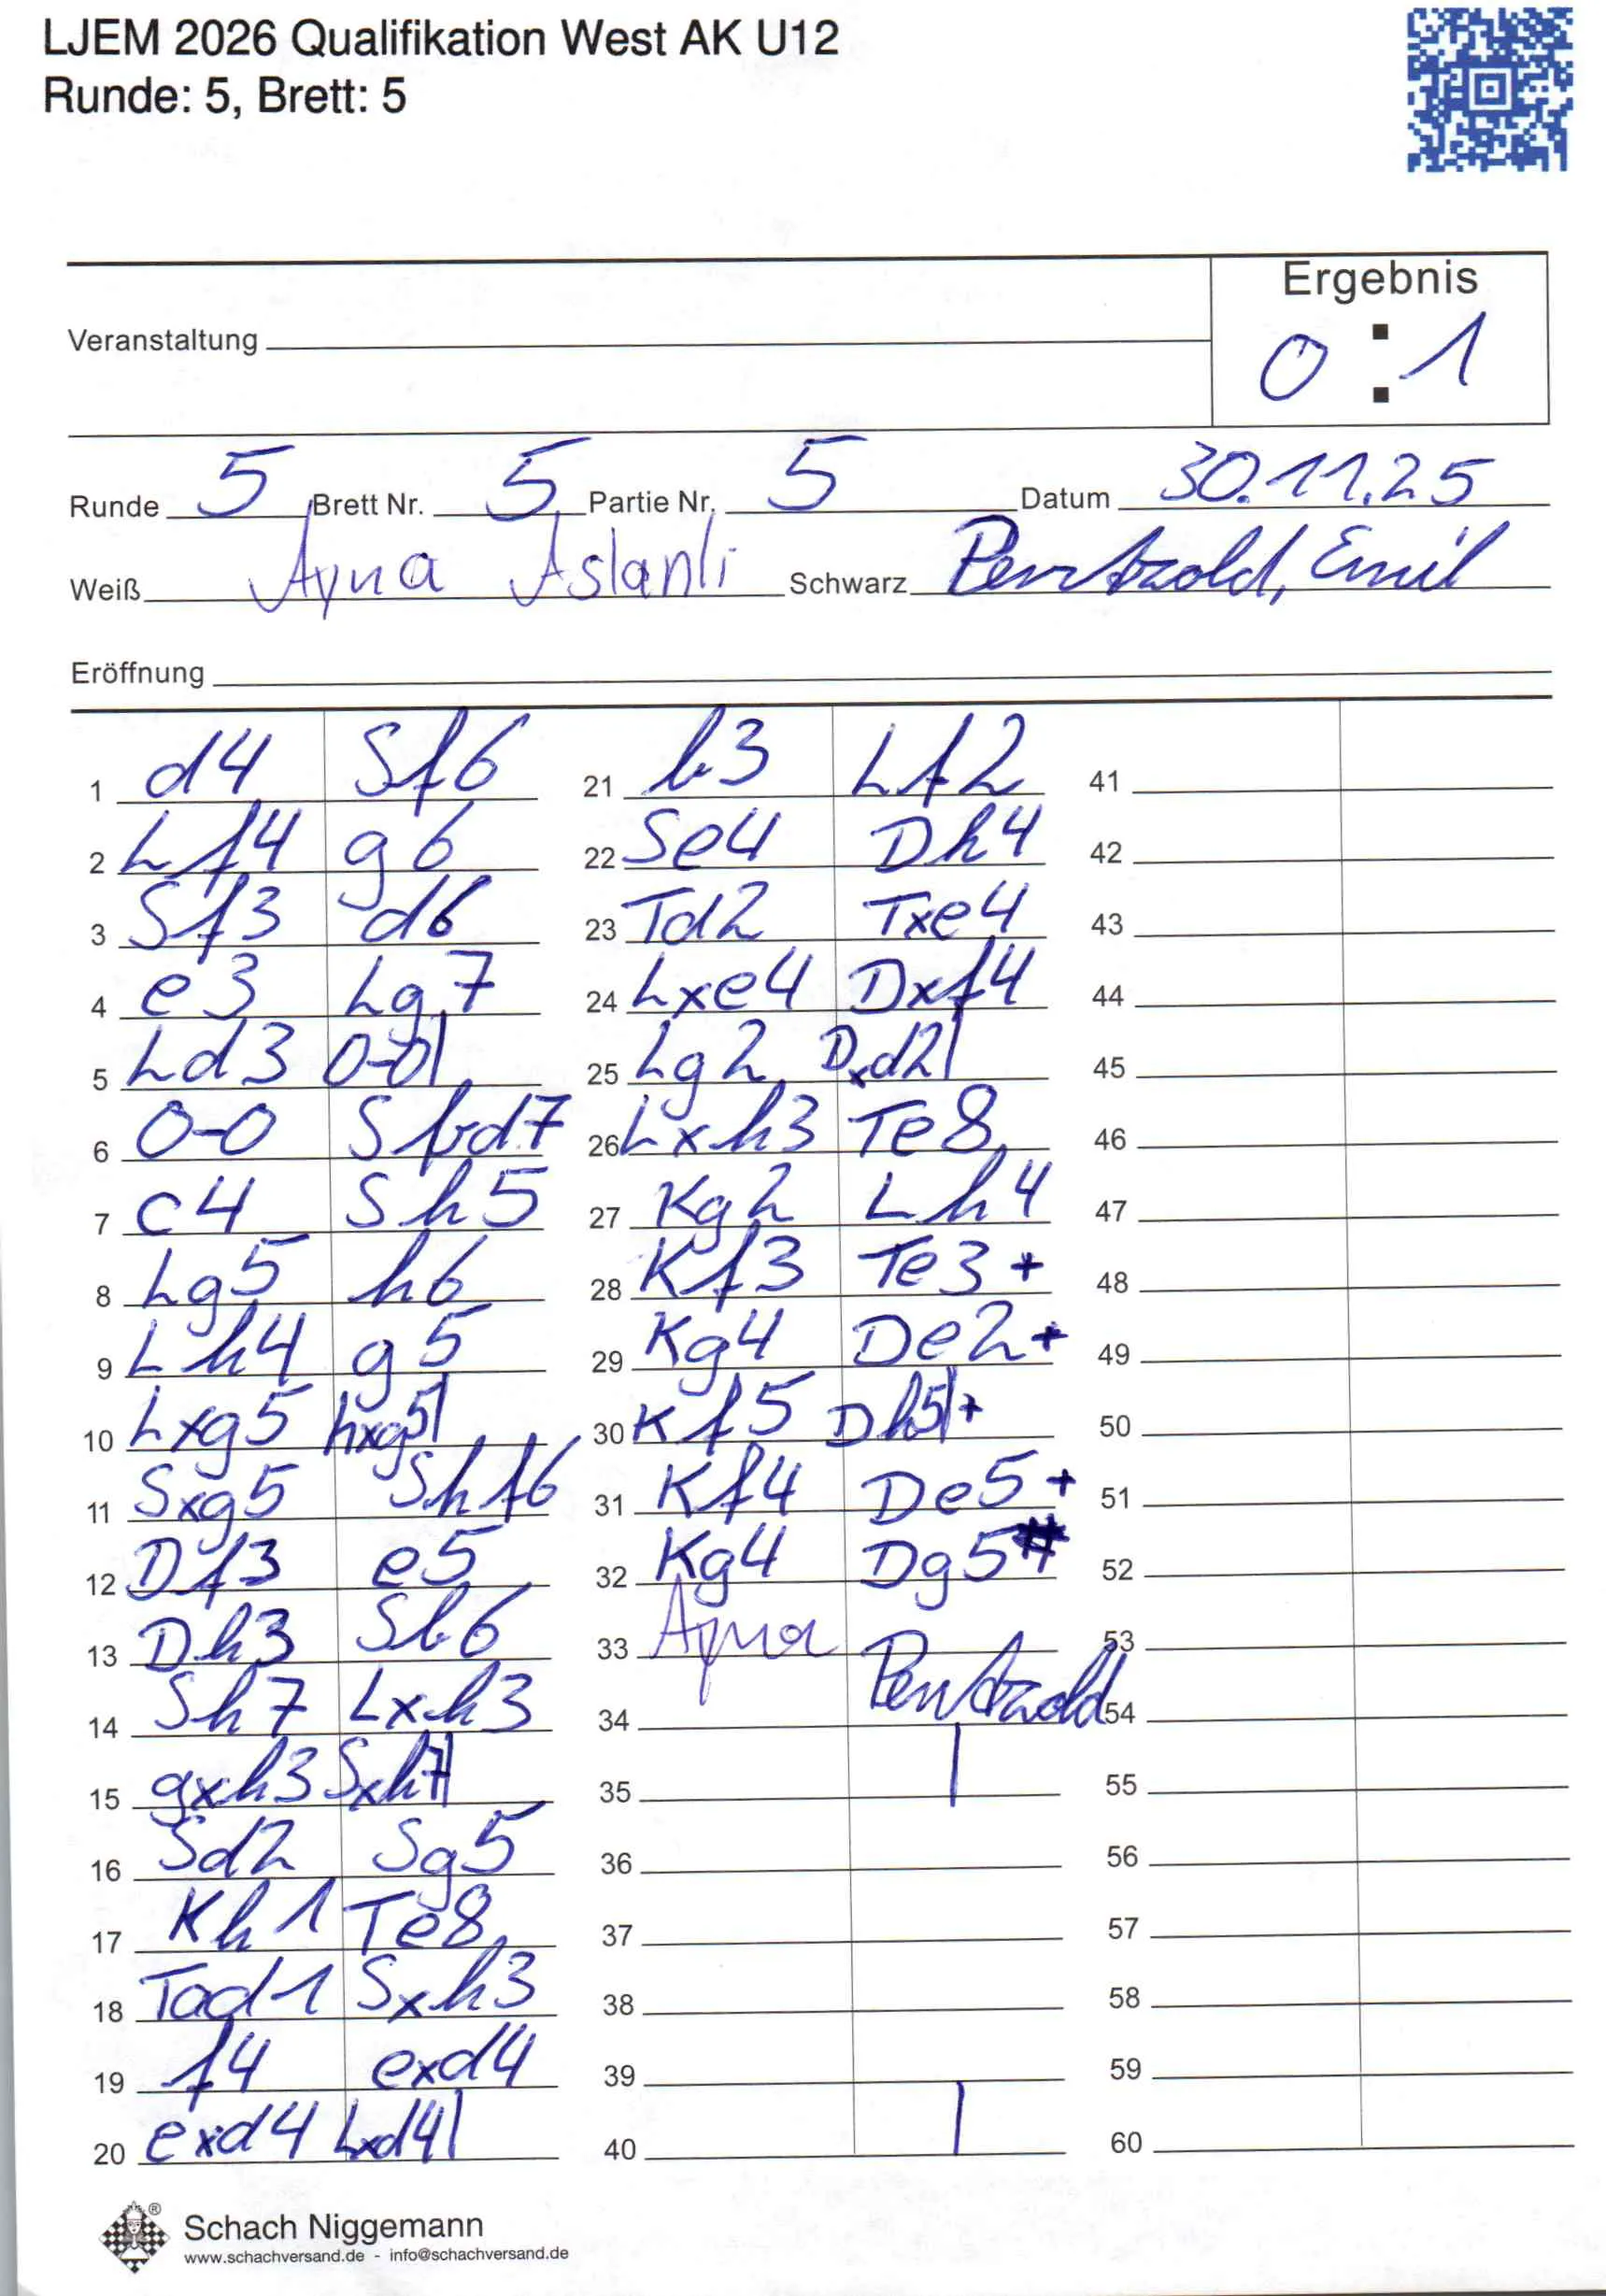 LJEM 2026 Qualifikation West AK U12
Runde: 5, Brett: 5
Ergebnis
0 : 1
Veranstaltung
Runde 5 Brett Nr. 5 Partie Nr. 5 Datum 30.11.25
Weiß Ayna Aslanli Schwarz Pentzold, Emil
Eröffnung
1 d4 Sf6
2 Lf4 g6
3 Sf3 d6
4 e3 Lg7
5 Ld3 0-0
6 0-0 Sbd7
7 c4 Sh5
8 Lg5 h6
9 Lh4 g5
10 Lxg5 hxg5
11 Sxg5 Shf6
12 Df3 e5
13 Dh3 Sb6
14 Sh7 Lxh3
15 gxh3 Sxh7
16 Sd2 Sg5
17 Kh1 Te8
18 Tad1 Sxh3
19 f4 exd4
20 exd4 Lxd4
21 b3 Lf2
22 Se4 Dh4
23 Td2 Txe4
24 Lxe4 Dxf4
25 Lg2 Dxd2
26 Lxh3 Te8
27 Kg2 Lh4
28 Kf3 Te3+
29 Kg4 De2+
30 Kf5 Dh5+
31 Kf4 De5+
32 Kg4 Dg5#
33 Ayna Pentzold
34
35
36
37
38
39
40
41
42
43
44
45
46
47
48
49
50
51
52
53
54
55
56
57
58
59
60
Schach Niggemann
www.schachversand.de - info@schachversand.de